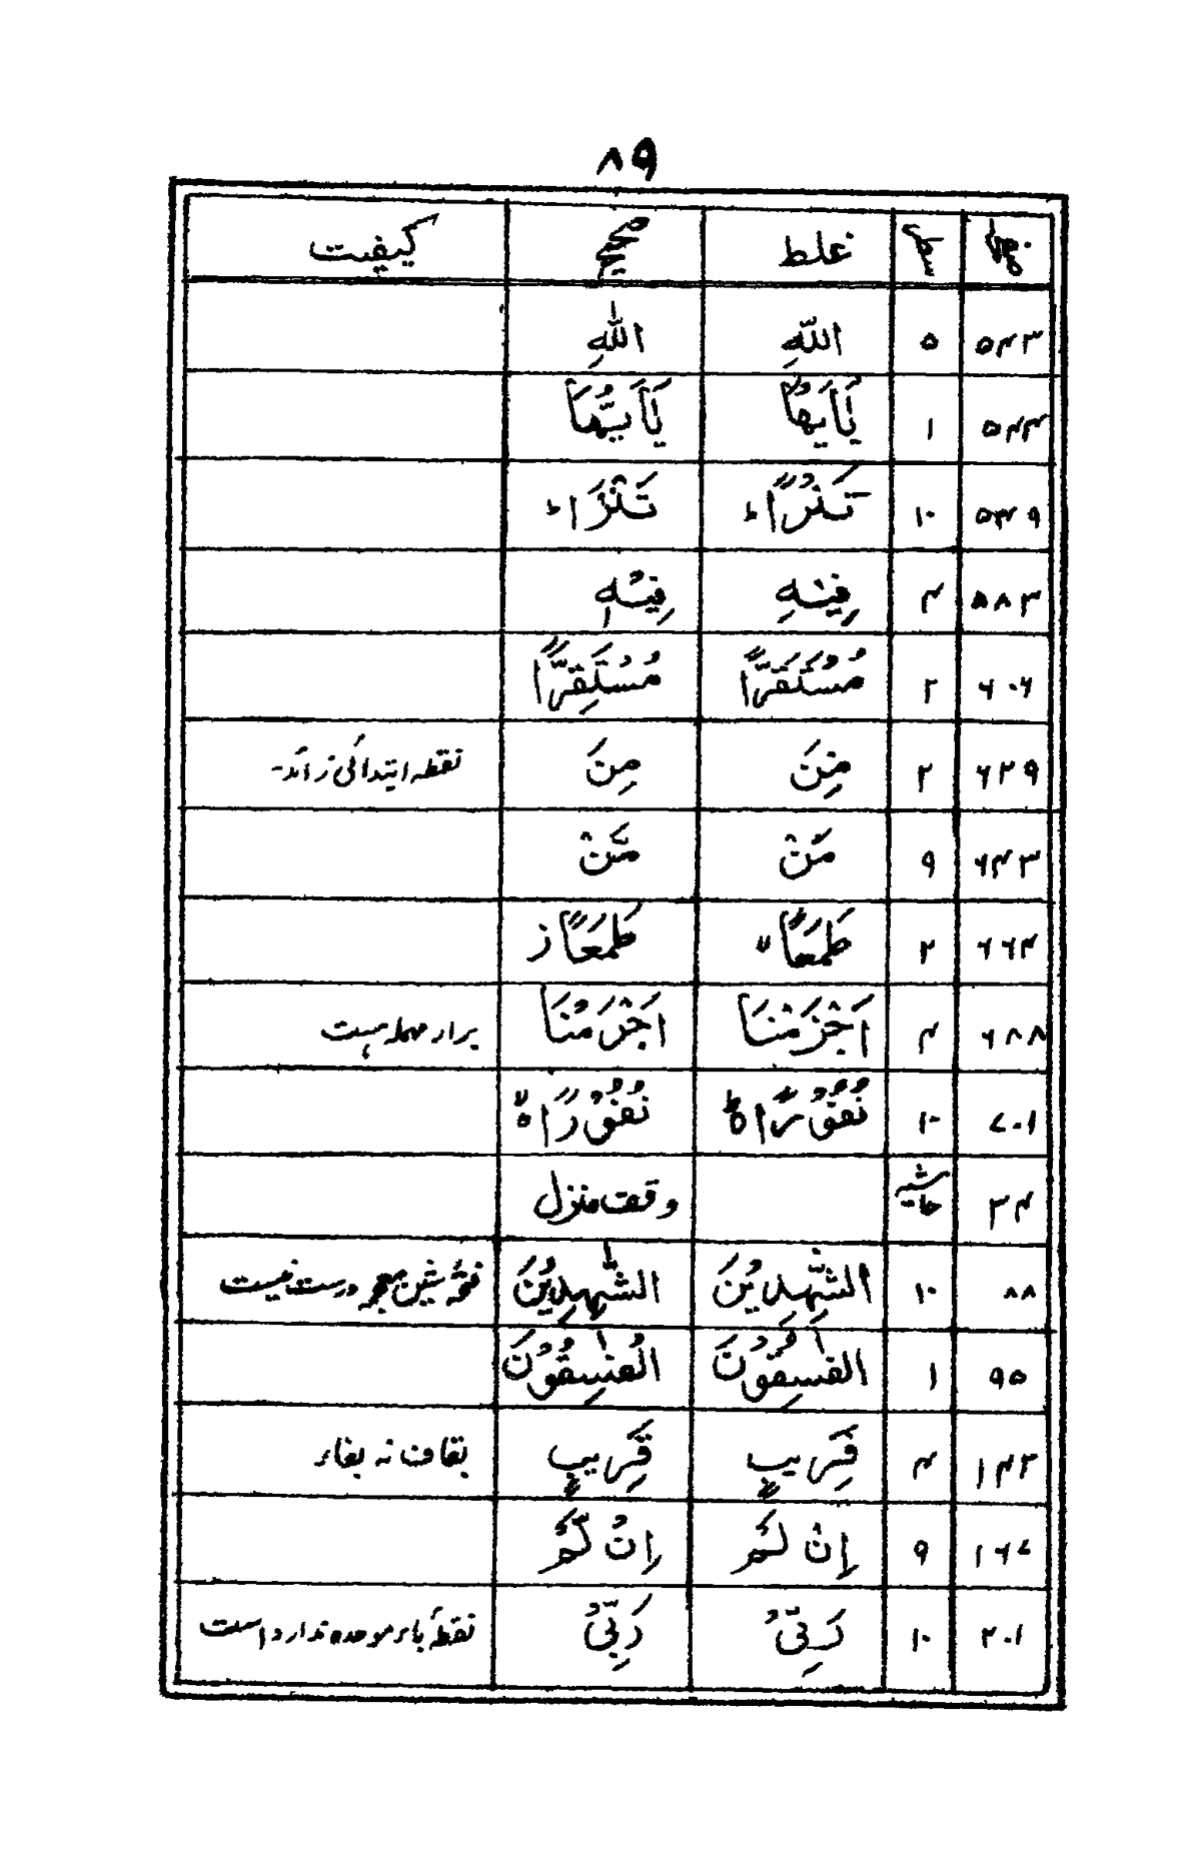 ۸۹
صفحہ سطر غلط صحیح کیفیت
۵۴۳ ۵ اللّٰهِ اللّٰهِ
۵۴۴ ۱ يٰۤاَيُّهَا يٰۤاَيُّهَا
۵۴۹ ۱۰ تَتْرَا ط
۵۸۳ ۴ فِيْهِ فِيْهٖ
۶۰۶ ۲ مُسْتَقَرًّا مُسْتَقِرًّا
۶۲۹ ۲ مِنَ مِنَ نقطہ ابتدائی زائد۔
۶۴۳ ۹ مَنْ مَّنْ
۶۶۴ ۲ طَمَعًا طَمَعًا ز
۶۸۸ ۴ اَجْزَمْنَا اَجْرَمْنَا براء مہملہ ہست
۷۰۱ ۱۰ نُفُوْرًا نُفُوْرًا
۳۴ حاشیہ وقف منزل
۸۸ ۱۰ الشّٰهِدِيْنَ الشّٰهِدِيْنَ فتحۂ شین معجمہ درست نیست
۹۵ ۱ الفٰسِقُوْنَ الْفٰسِقُوْنَ
۱۴۳ ۴ فَرِيبٍ قَرِيبٍ بقاف نہ بفاء
۱۶۷ ۹ اِنْ لَمْ اِنْ لَّمْ
۲۰۱ ۱۰ رَبِّىْ رَبِّىْ نقطۂ باء موحدہ ندارد است